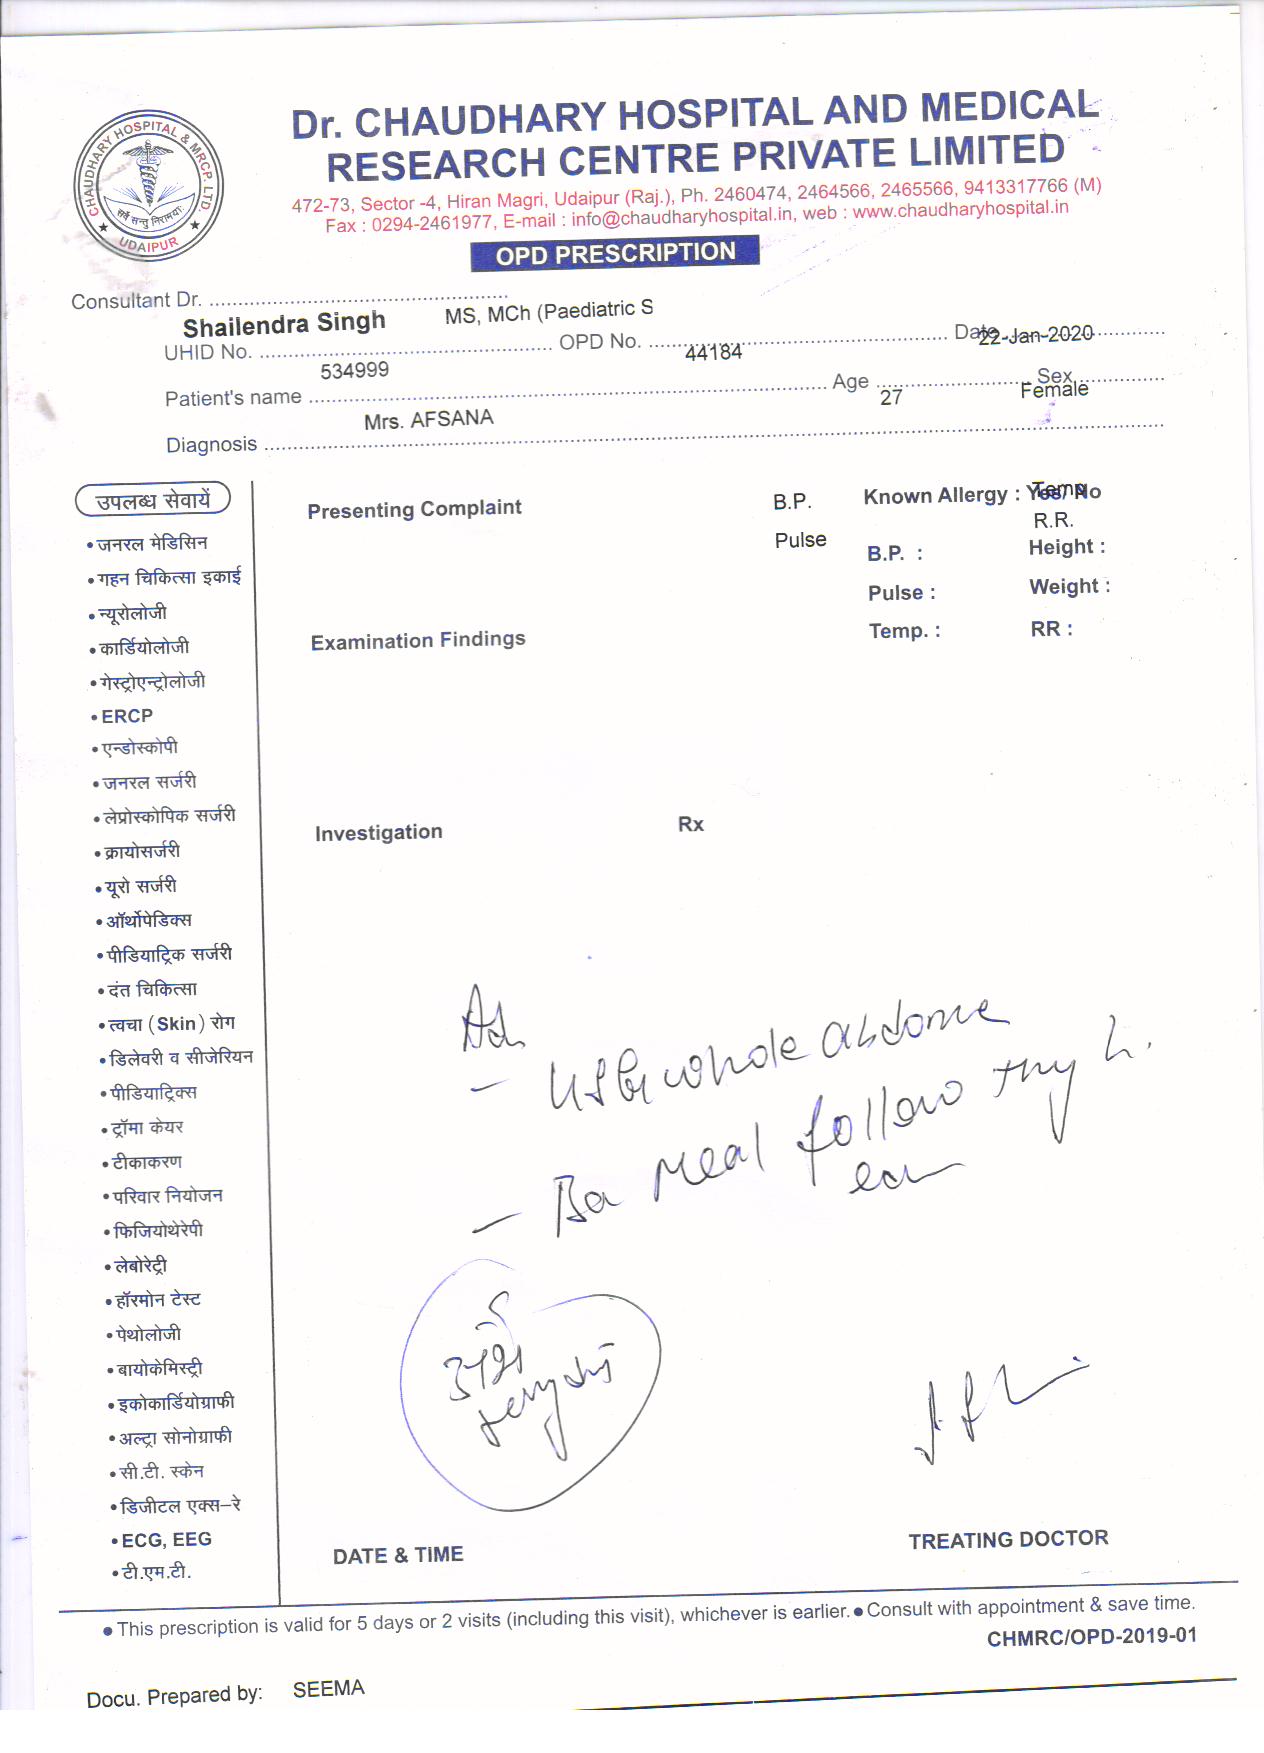 CHAUDHARY HOSPITAL & MRCP. LTD.
सर्वे सन्तु निरामयाः
★ UDAIPUR ★
Dr. CHAUDHARY HOSPITAL AND MEDICAL
RESEARCH CENTRE PRIVATE LIMITED
472-73, Sector -4, Hiran Magri, Udaipur (Raj.), Ph. 2460474, 2464566, 2465566, 9413317766 (M)
Fax : 0294-2461977, E-mail : info@chaudharyhospital.in, web : www.chaudharyhospital.in
OPD PRESCRIPTION
Consultant Dr.
Shailendra Singh MS, MCh (Paediatric S
UHID No. OPD No. Date
534999 44184 22-Jan-2020
Patient's name Age Sex
Mrs. AFSANA 27 Female
Diagnosis
उपलब्ध सेवायें
• जनरल मेडिसिन
• गहन चिकित्सा इकाई
• न्यूरोलोजी
• कार्डियोलोजी
• गेस्ट्रोएन्ट्रोलोजी
• ERCP
• एन्डोस्कोपी
• जनरल सर्जरी
• लेप्रोस्कोपिक सर्जरी
• क्रायोसर्जरी
• यूरो सर्जरी
• ऑर्थोपेडिक्स
• पीडियाट्रिक सर्जरी
• दंत चिकित्सा
• त्वचा (Skin) रोग
• डिलेवरी व सीजेरियन
• पीडियाट्रिक्स
• ट्रॉमा केयर
• टीकाकरण
• परिवार नियोजन
• फिजियोथेरेपी
• लेबोरेट्री
• हॉरमोन टेस्ट
• पेथोलोजी
• बायोकेमिस्ट्री
• इकोकार्डियोग्राफी
• अल्ट्रा सोनोग्राफी
• सी.टी. स्केन
• डिजीटल एक्स-रे
• ECG, EEG
• टी.एम.टी.
Presenting Complaint B.P. Known Allergy : Yes/ No Temp
Pulse R.R.
B.P. : Height :
Pulse : Weight :
Examination Findings Temp. : RR :
Investigation Rx
Ad
- USG whole abdome
- Ba meal follow
DATE & TIME TREATING DOCTOR
● This prescription is valid for 5 days or 2 visits (including this visit), whichever is earlier. ● Consult with appointment & save time.
CHMRC/OPD-2019-01
Docu. Prepared by: SEEMA